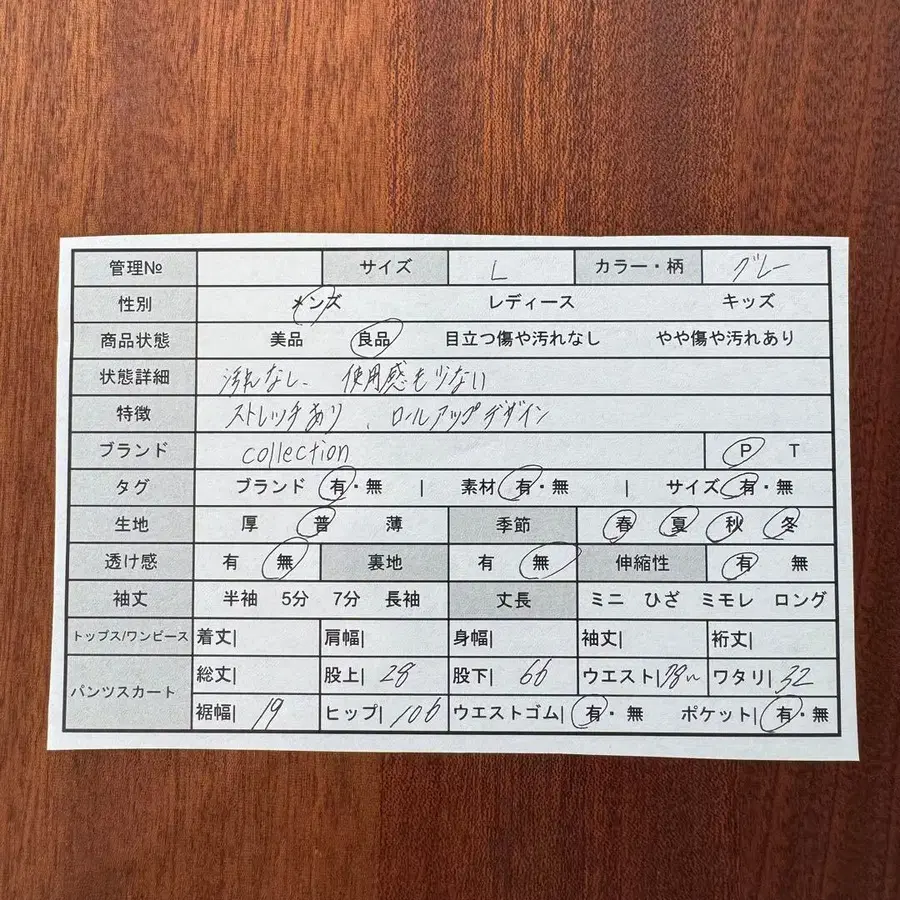 管理№ サイズ L カラー・柄 グレー
性別 メンズ レディース キッズ
商品状態 美品 良品 目立つ傷や汚れなし やや傷や汚れあり
状態詳細 汚れなし、使用感も少ない
特徴 ストレッチあり、ロールアップデザイン
ブランド collection P T
タグ ブランド 有・無 | 素材 有・無 | サイズ 有・無
生地 厚 普 薄 季節 春 夏 秋 冬
透け感 有 無 裏地 有 無 伸縮性 有 無
袖丈 半袖 5分 7分 長袖 丈長 ミニ ひざ ミモレ ロング
トップス/ワンピース 着丈| 肩幅| 身幅| 袖丈| 裄丈|
パンツスカート 総丈| 股上| 28 股下| 66 ウエスト| 78〜 ワタリ| 32
裾幅| 19 ヒップ| 106 ウエストゴム| 有・無 ポケット| 有・無